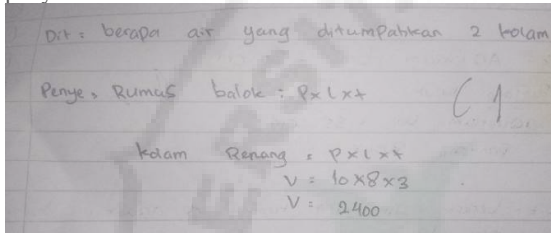 Dit : berapa air yang ditumpahkan 2 kolam
Penye : Rumus balok : P x l x t
kolam Renang : P x l x t
V = 10 x 8 x 3
V = 2400